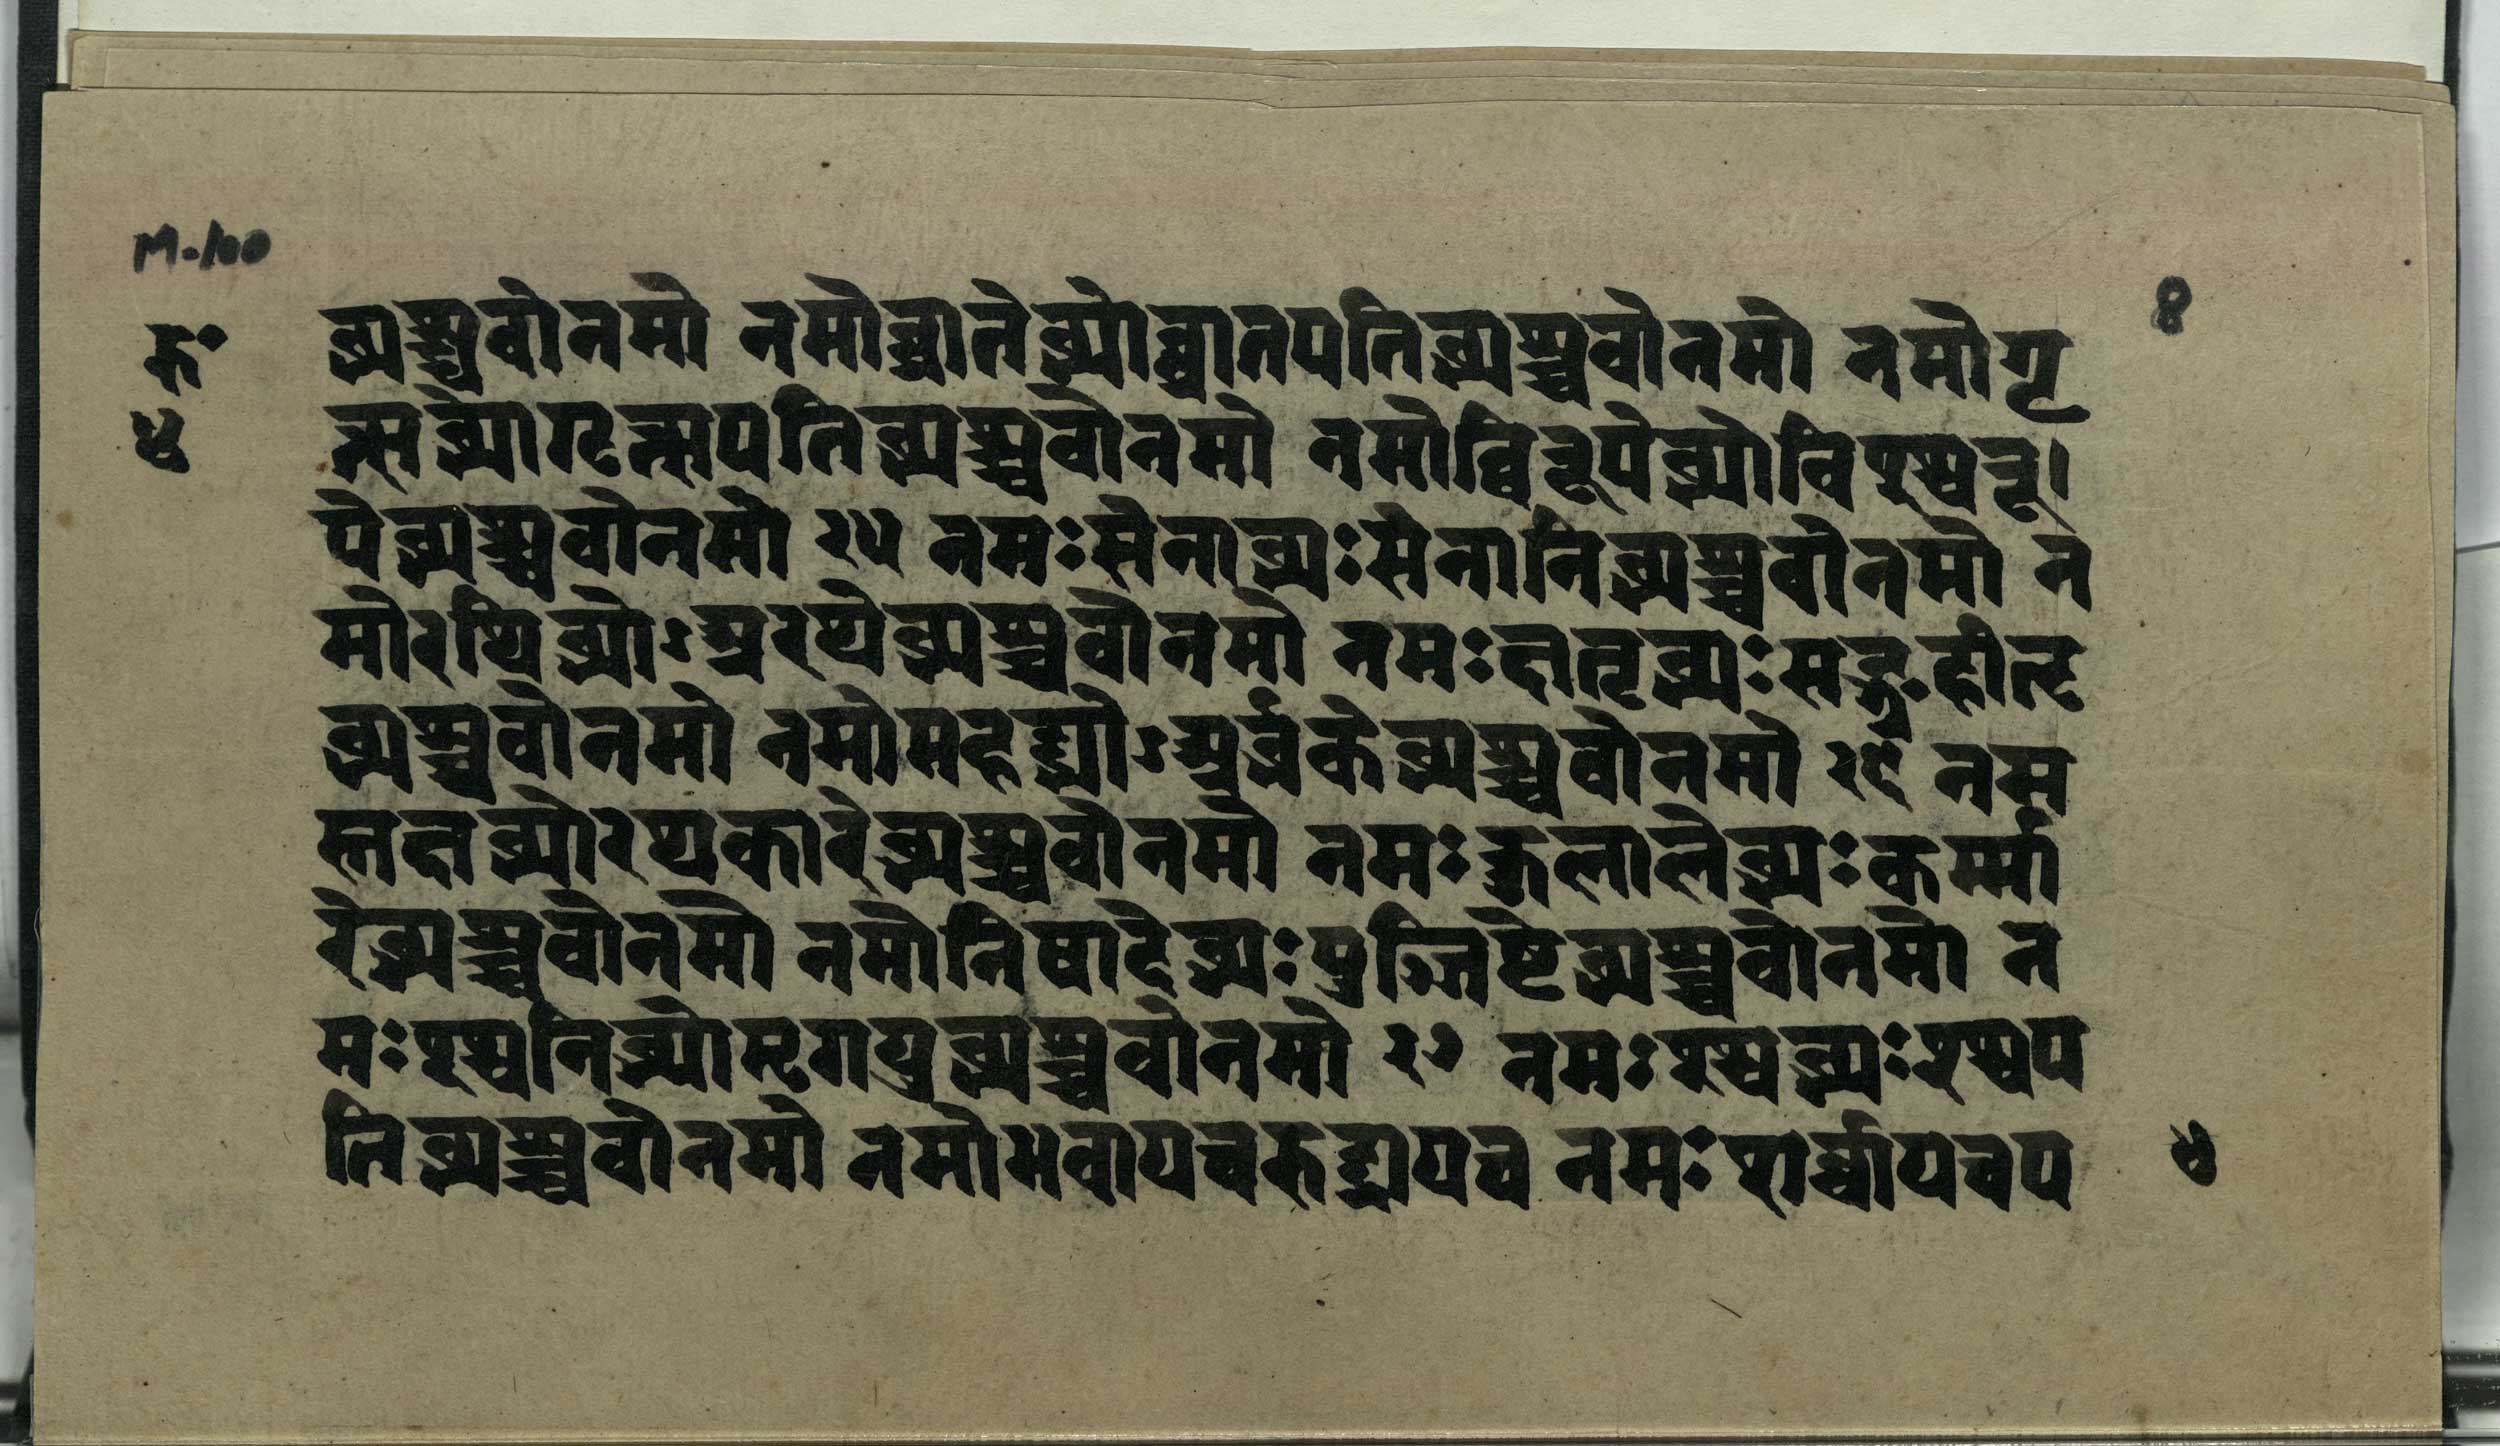 M-100
रु॰
४
8
भ्यश्श्चवोनमो नमोव्व्रातेभ्योव्व्रातपतिभ्यश्श्चवोनमो नमोगृ
त्सेभ्योगृत्सपतिभ्यश्श्चवोनमो नमोव्विरूपेभ्योविश्श्वरू।
पेभ्यश्श्चवोनमो २५ नमःसेनाभ्यःसेनानिभ्यश्श्चवोनमो न
मोरथिभ्योऽअरथेभ्यश्श्चवोनमो नमःक्षतृभ्यःसङ्ग्रहीतृ
भ्यश्श्चवोनमो नमोमहद्भ्योऽअर्ब्भकेभ्यश्श्चवोनमो २६ नम
स्तक्षभ्योरथकारेभ्यश्श्चवोनमो नमःकुलालेभ्यःकर्म्मा
रेभ्यश्श्चवोनमो नमोनिषादेभ्यःपुञ्जिष्टेभ्यश्श्चवोनमो न
मःश्श्वनिभ्योमृगयुभ्यश्श्चवोनमो २७ नमःश्श्वभ्यःश्श्वप
तिभ्यश्श्चवोनमो नमोभवायचरुद्रायच नमःशर्व्वायचप